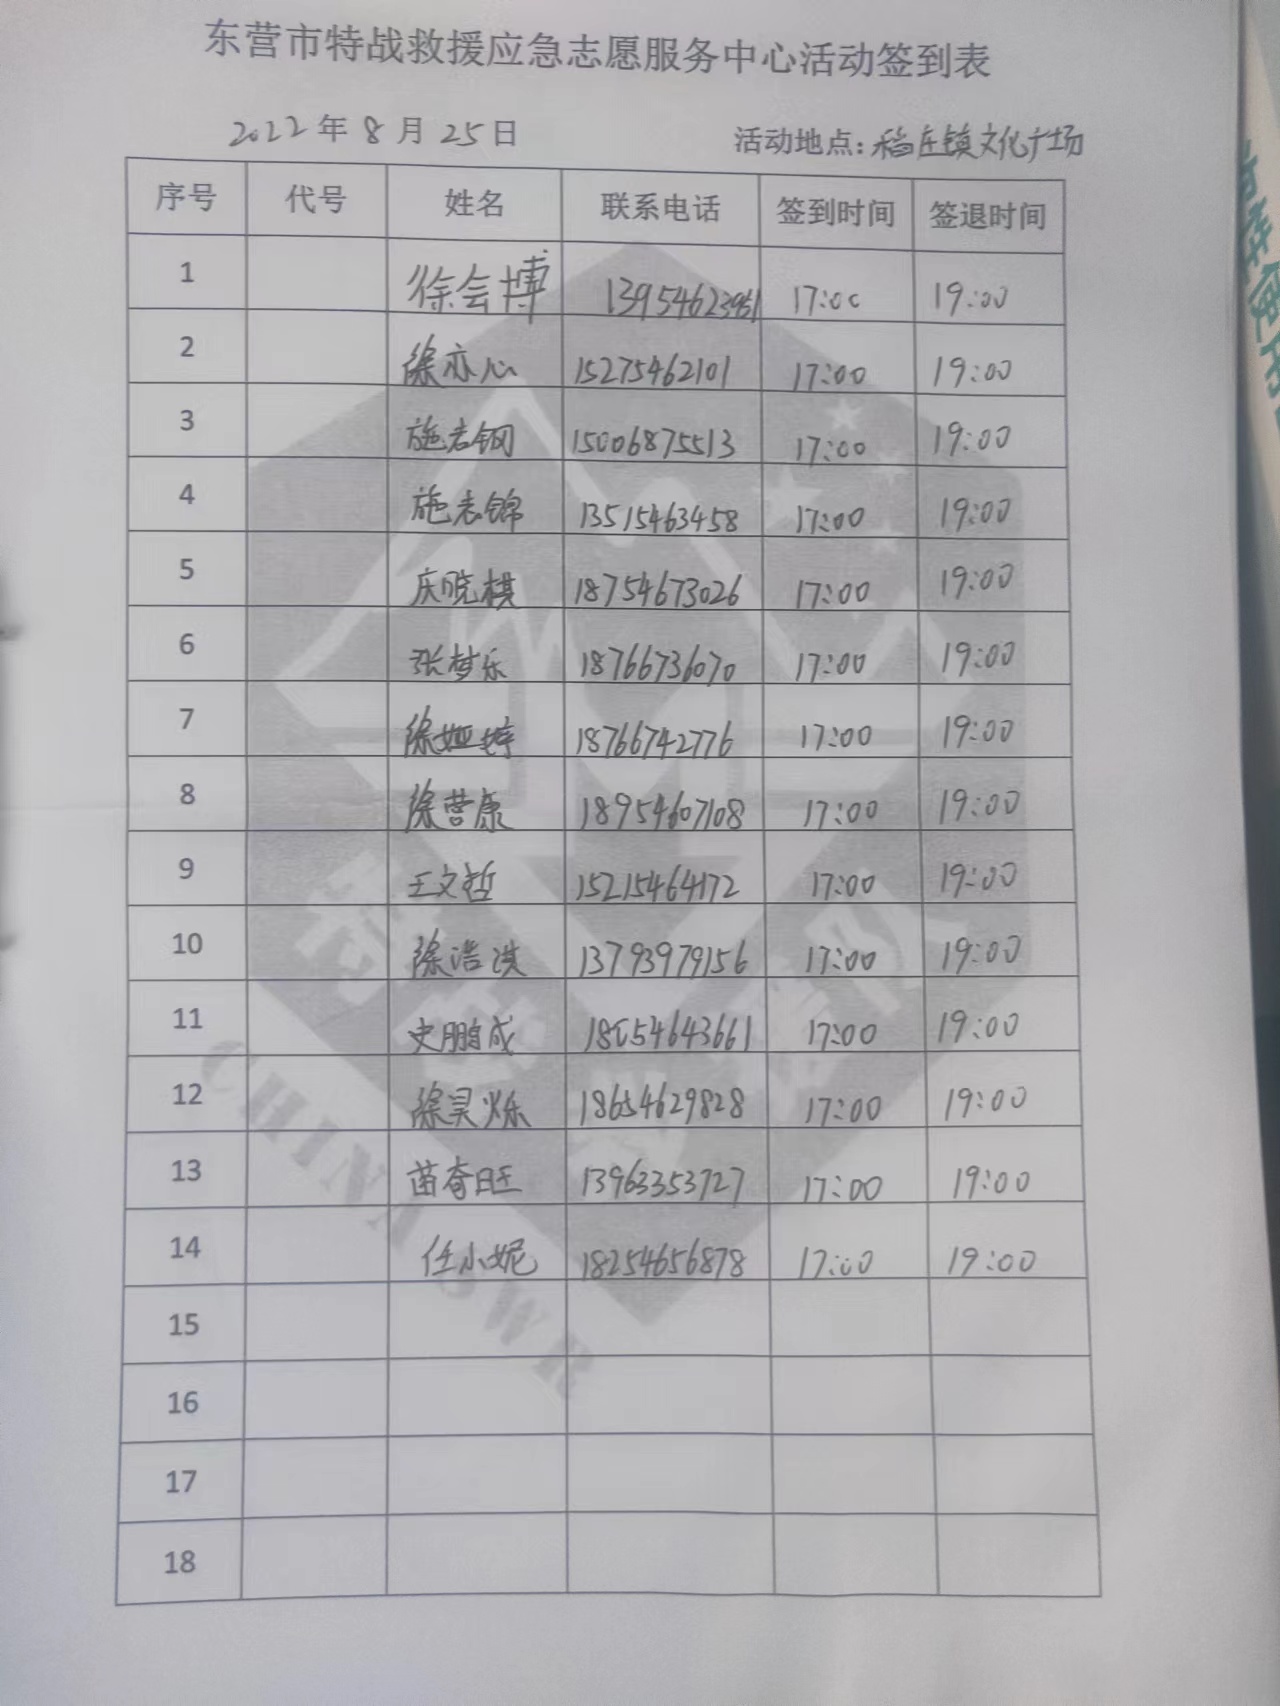 东营市特战救援应急志愿服务中心活动签到表
2022年8月25日 活动地点:稻庄镇文化广场
序号 代号 姓名 联系电话 签到时间 签退时间
1 徐会博 13954623961 17:00 19:00
2 徐亦心 15275462101 17:00 19:00
3 施志钢 15006875513 17:00 19:00
4 施志锦 13515463458 17:00 19:00
5 庆晓棋 18754673026 17:00 19:00
6 张梦乐 18766736070 17:00 19:00
7 徐娅婷 18766742776 17:00 19:00
8 徐营康 18954607108 17:00 19:00
9 王文哲 15215464172 17:00 19:00
10 徐浩洪 13793979156 17:00 19:00
11 史鹏成 18654643661 17:00 19:00
12 徐昊烁 18654629828 17:00 19:00
13 苗奇旺 13963353727 17:00 19:00
14 任小妮 18254656878 17:00 19:00
15
16
17
18
CHINA SWR